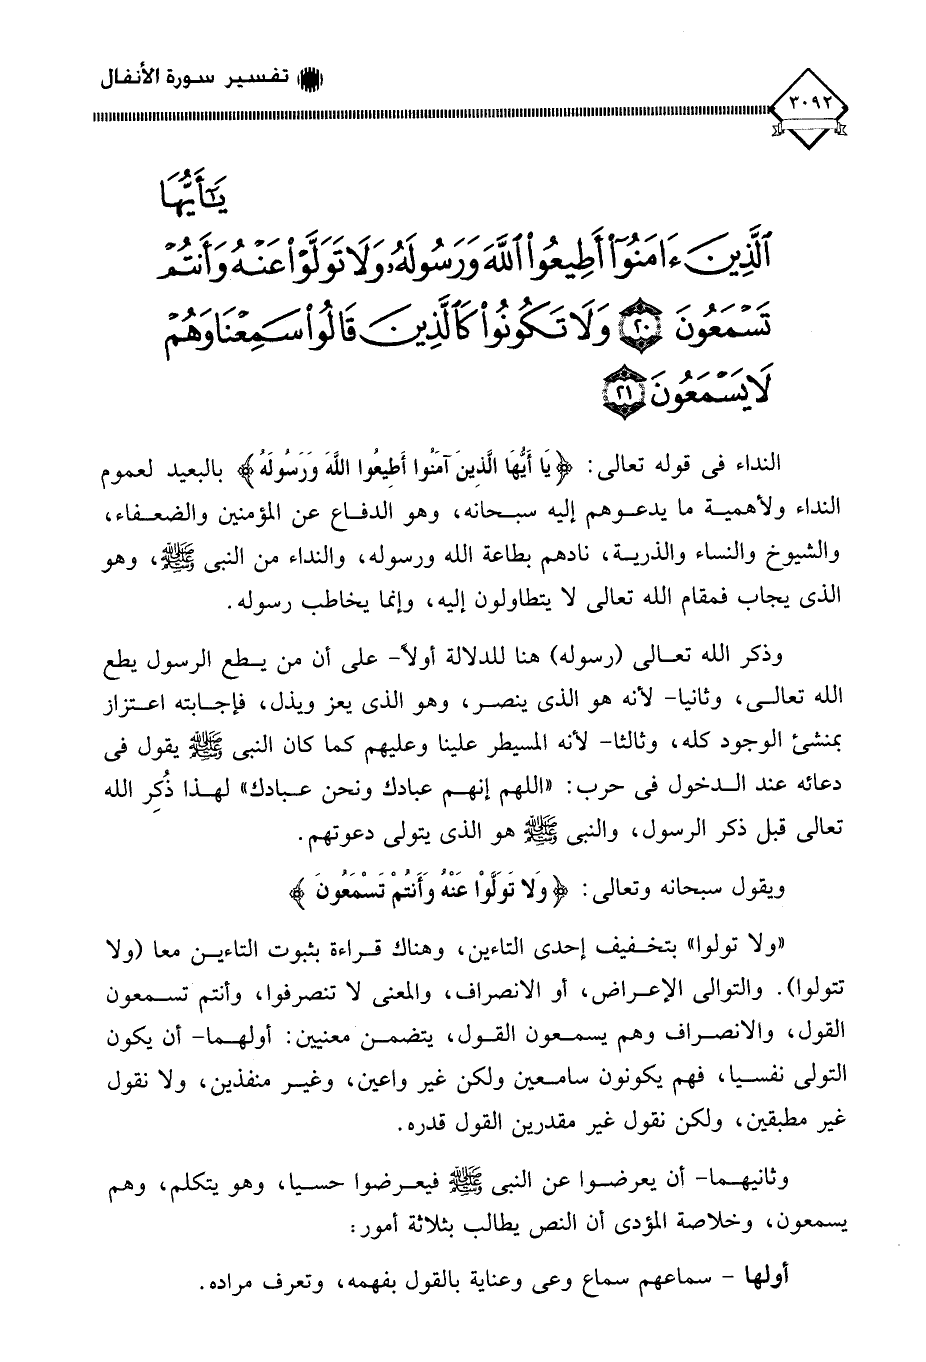 تفسير سورة الأنفال
٣٠٩٢
يَٰٓأَيُّهَا
ٱلَّذِينَ ءَامَنُوٓا۟ أَطِيعُوا۟ ٱللَّهَ وَرَسُولَهُۥ وَلَا تَوَلَّوْا۟ عَنْهُ وَأَنتُمْ
تَسْمَعُونَ ٢٠ وَلَا تَكُونُوا۟ كَٱلَّذِينَ قَالُوا۟ سَمِعْنَا وَهُمْ
لَا يَسْمَعُونَ ٢١
النداء فى قوله تعالى: ﴿يَا أَيُّهَا الَّذِينَ آمَنُوا أَطِيعُوا اللَّهَ وَرَسُولَهُ﴾ بالبعيد لعموم
النداء ولأهمية ما يدعوهم إليه سبحانه، وهو الدفاع عن المؤمنين والضعفاء،
والشيوخ والنساء والذرية، نادهم بطاعة الله ورسوله، والنداء من النبى ﷺ، وهو
الذى يجاب فمقام الله تعالى لا يتطاولون إليه، وإنما يخاطب رسوله.
وذكر الله تعالى (رسوله) هنا للدلالة أولاً- على أن من يطع الرسول يطع
الله تعالى، وثانيا- لأنه هو الذى ينصر، وهو الذى يعز ويذل، فإجابته اعتزاز
بمنشئ الوجود كله، وثالثا- لأنه المسيطر علينا وعليهم كما كان النبى ﷺ يقول فى
دعائه عند الدخول فى حرب: «اللهم إنهم عبادك ونحن عبادك» لهذا ذُكِر الله
تعالى قبل ذكر الرسول، والنبى ﷺ هو الذى يتولى دعوتهم.
ويقول سبحانه وتعالى: ﴿وَلا تَوَلَّوْا عَنْهُ وَأَنتُمْ تَسْمَعُونَ﴾
«ولا تولوا» بتخفيف إحدى التاءين، وهناك قراءة بثبوت التاءين معا (ولا
تتولوا). والتوالى الإعراض، أو الانصراف، والمعنى لا تنصرفوا، وأنتم تسمعون
القول، والانصراف وهم يسمعون القول، يتضمن معنيين: أولهما- أن يكون
التولى نفسيا، فهم يكونون سامعين ولكن غير واعين، وغير منفذين، ولا نقول
غير مطبقين، ولكن نقول غير مقدرين القول قدره.
وثانيهما- أن يعرضوا عن النبى ﷺ فيعرضوا حسيا، وهو يتكلم، وهم
يسمعون، وخلاصة المؤدى أن النص يطالب بثلاثة أمور:
أولها - سماعهم سماع وعى وعناية بالقول بفهمه، وتعرف مراده.